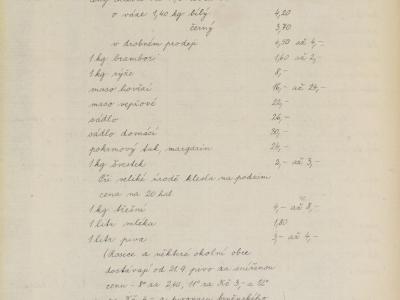 o váze 1,40 kg bílý 4,20
černý 3,70
v drobném prodeji 4,50 až 4,-
1 kg brambor 1,60 až 2,-
1 kg rýže 8,-
maso hovězí 16,- až 24,-
maso vepřové 22,-
sádlo 26,-
sádlo domácí 30,-
pokrmový tuk, margarin 24,-
1 kg švestek 2,- až 3,-
Při veliké úrodě klesla na podzim
cena na 20 hal.
1 kg třešní 4,- až 8,-
1 litr mléka 1,80
1 litr piva 3,- až 4,-
(Rosice a některé okolní obce
dostávají od 21.9. pivo za sníženou
cenu - 8° za 2,40, 11° za Kč 3,- a 12°